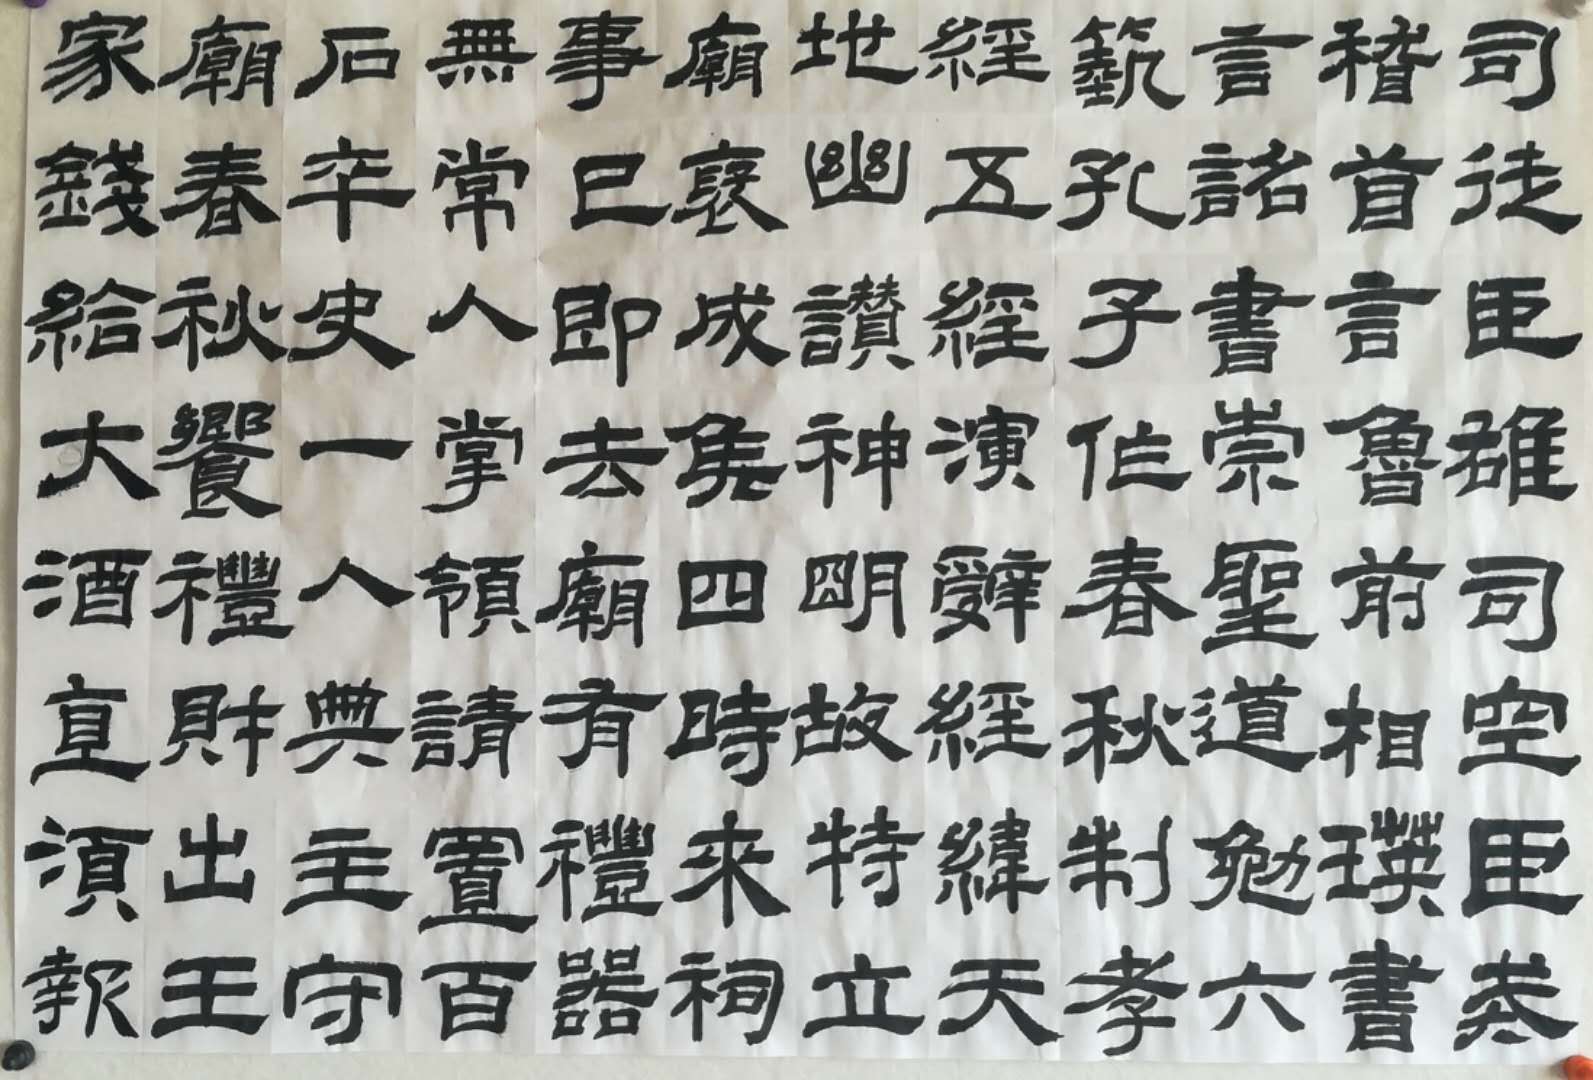 司徒臣雄司空臣戒
稽首言魯前相瑛書
言詔書崇聖道勉六
藝孔子作春秋制孝
經五經演辭經緯天
地幽讚神明故特立
廟褒成侯四時來祠
事已即去廟有禮器
無常人掌領請置百
石卒史一人典主守
廟春秋饗禮財出王
家錢給大酒直須報